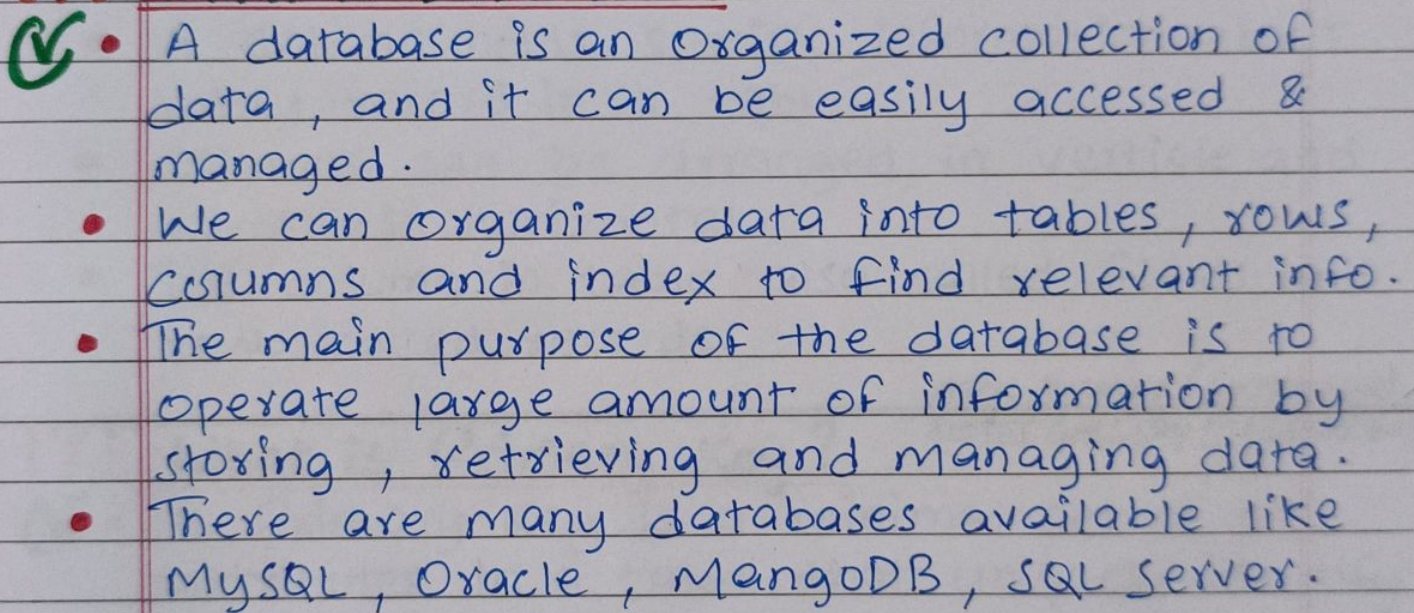 • A database is an organized collection of
data, and it can be easily accessed &
managed.
• We can organize data into tables, rows,
columns and index to find relevant info.
• The main purpose of the database is to
operate large amount of information by
storing, retrieving and managing data.
• There are many databases available like
MySQL, Oracle, MangoDB, SQL Server.